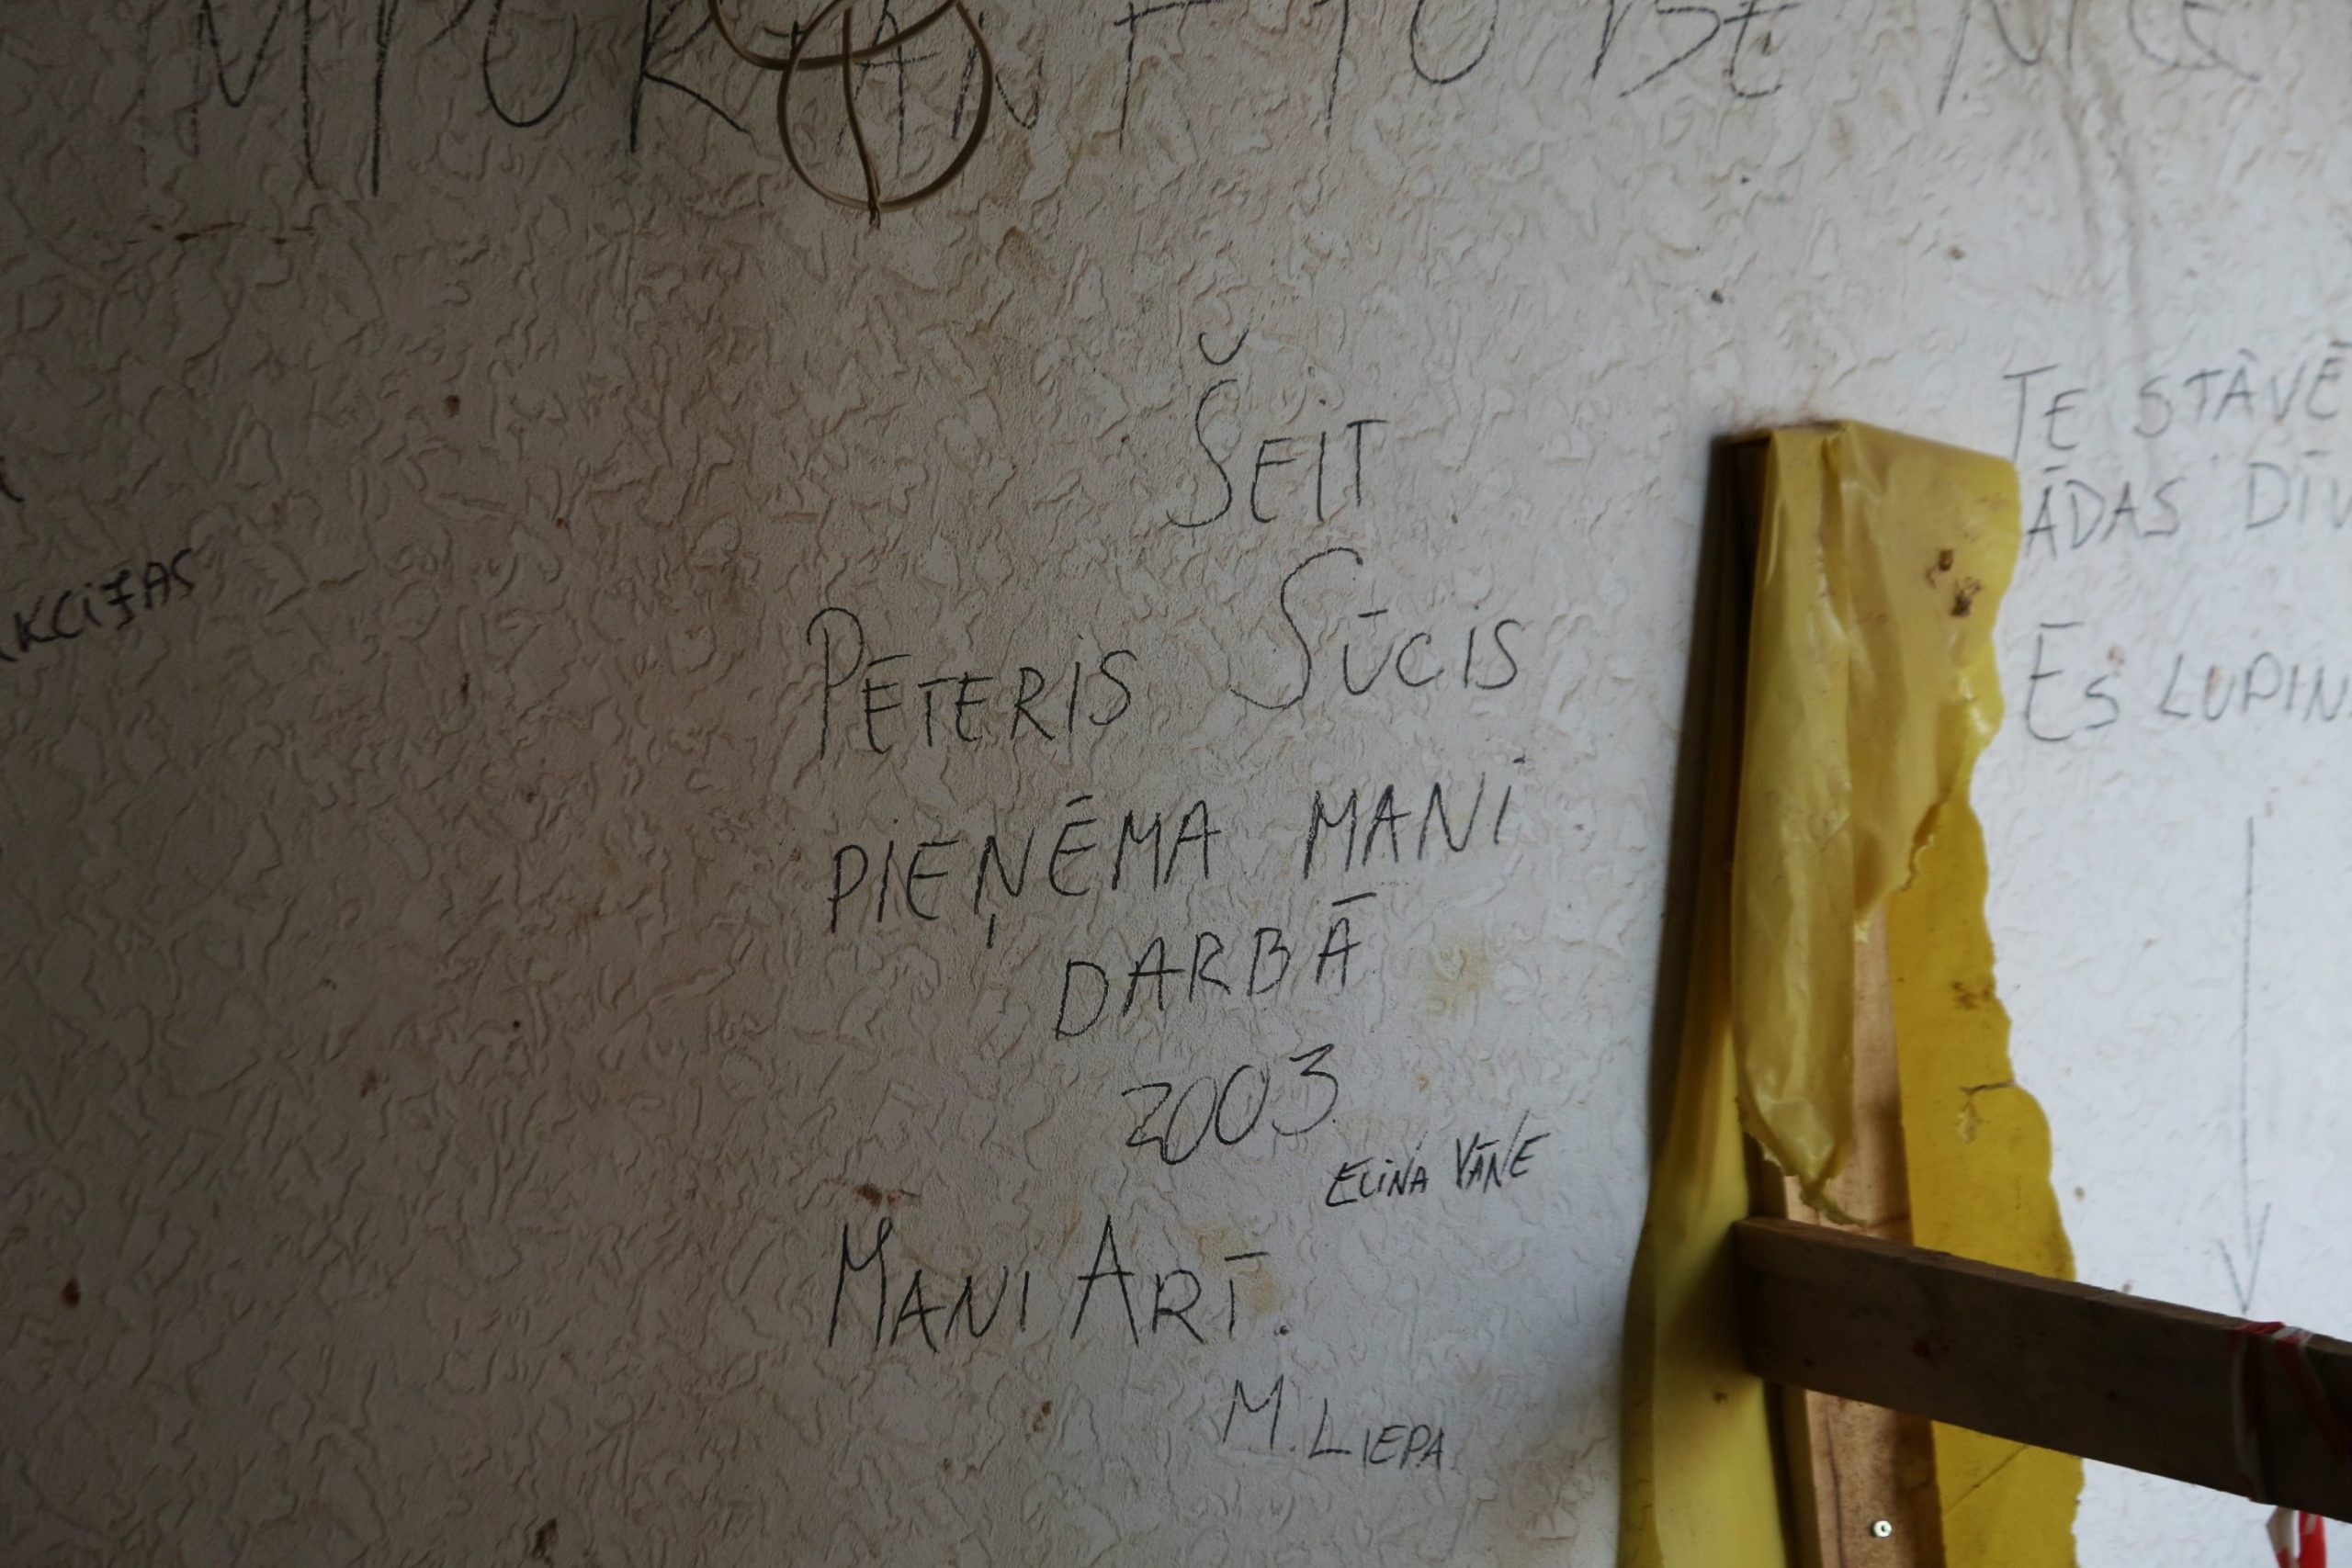 IMPORTANT TO BE NICE
ŠEIT
PĒTERIS SŪCIS
PIEŅĒMA MANI
DARBĀ
2003
ELINA VĀNE
MANI ARĪ.
M. LIEPA
KCIJAS
TE STĀVĒ
ĀDAS DĪV
ES LUPIN